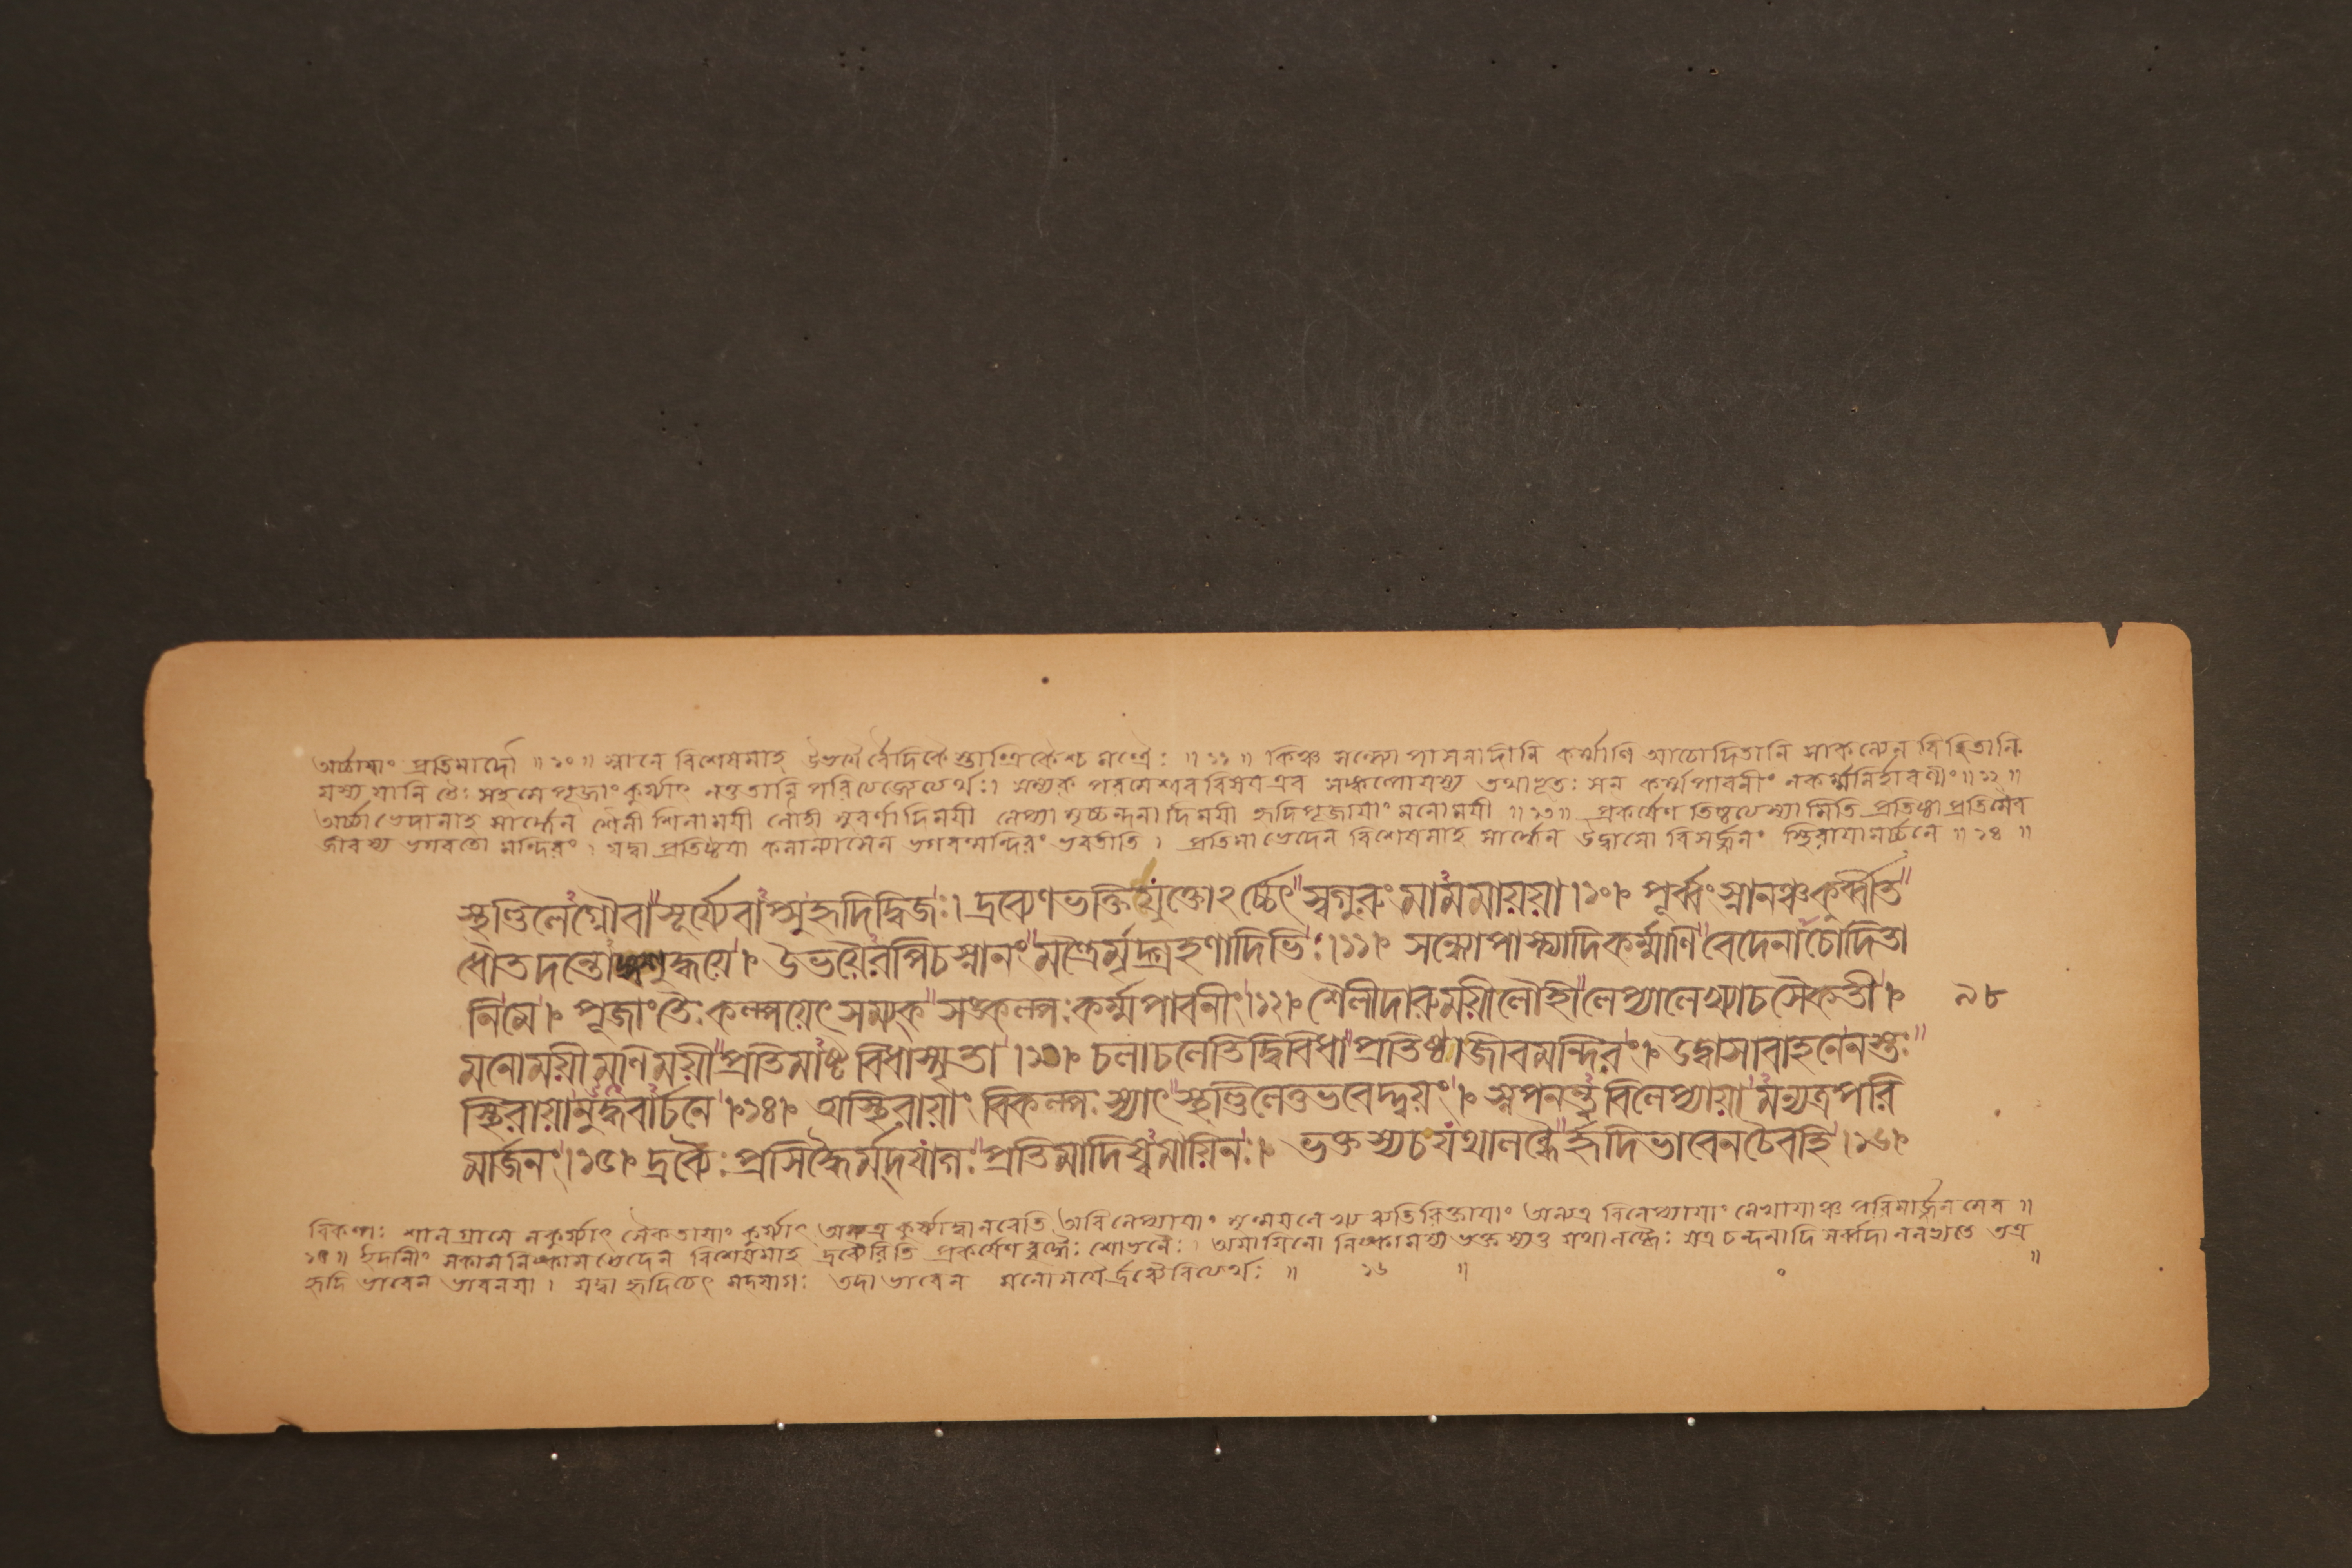 অর্চ্চায়াং প্রতিমাদৌ ॥ ১০ ॥ স্নানে বিশেষমাহ উভয়ৈর্বৈদিকৈস্তান্ত্রিকৈশ্চ মন্ত্রৈঃ ॥ ১১ ॥ কিঞ্চ সন্ধ্যোপাসনাদীনি কর্ম্মাণি আচোদিতানি সাকল্যেন বিহিতানি
যস্য যানি তৈঃ সহ মে পূজাং কুর্য্যাৎ নতু তানি পরিত্যজেদিত্যর্থঃ। সম্যক পরমেশ্বর বিষয় এব সঙ্কল্পো যস্য তথাভূতঃ সন কর্ম্মপাবনীং নকর্ম্মনির্হারণীং ॥ ১২ ॥
অর্চ্চাভেদানাহ সার্দ্ধেন শৈলী শিলাময়ী লৌহী সুবর্ণাদিময়ী লেপ্যা মৃচ্চন্দনাদিময়ী হৃদিপূজায়াং মনোময়ী ॥ ১৩ ॥ প্রকর্ষেণ তিষ্ঠত্যস্যামিতি প্রতিষ্ঠা প্রতিমৈব
জীবস্য ভগবতো মন্দিরং। যদ্বা প্রতিষ্ঠয়া কলান্যাসেন ভগবন্মন্দিরং ভবতীতি। প্রতিমাভেদেন বিশেষমাহ সার্দ্ধেন উদ্বাসো বিসর্জ্জনং স্থিরায়ামর্চ্চনে ॥ ১৪ ॥
স্থণ্ডিলেগ্নৌবা সূর্য্যেবাপ্সুহৃদিদ্বিজঃ। দ্রব্যেণভক্তিযুক্তোঽর্চ্চেৎ স্বগুরুং মামমায়য়া।১০। পূর্ব্বং স্নানঞ্চকুর্ব্বীত
ধৌতদন্তোঙ্গশুদ্ধয়ে। উভয়ৈরপিচস্নানং মন্ত্রৈর্মৃদ্গ্রহণাদিভিঃ।১১। সন্ধ্যোপাস্ত্যাদিকর্ম্মাণি বেদেনাচোদিতা
নিমে। পূজাংতৈঃ কল্পয়েৎ সম্যক সঙ্কল্পঃ কর্ম্মপাবনীং।১২। শৈলীদারুময়ীলৌহী লেপ্যালেখ্যাচসৈকতী। ৯৮
মনোময়ীমণিময়ী প্রতিমাষ্টবিধাস্মৃতা।১৩। চলাচলেতিদ্বিবিধা প্রতিষ্ঠাজীবমন্দিরং। উদ্বাসাবাহনেনস্তঃ
স্থিরায়ামুদ্ধবার্চনে।১৪। অস্থিরায়াং বিকল্পঃ স্যাৎ স্থণ্ডিলেতুভবেদ্দ্বয়ং। স্নপনন্ত্ববিলেপ্যায়া মন্যত্রপরি
মার্জনং।১৫। দ্রব্যৈঃ প্রসিদ্ধৈর্মদযাগঃ প্রতিমাদিষ্বমায়িনঃ। ভক্তস্যচযথালব্ধৈ র্হৃদিভাবেনচৈবহি।১৬।
বিকল্পঃ শালগ্রামে নকুর্য্যাৎ সৈকতায়াং কুর্য্যাৎ অন্যত্র কুর্য্যাদ্বানবেতি অবিলেপ্যায়াং মৃণ্ময়লেখ্যব্যতিরিক্তায়াং অন্যত্র বিলেপ্যায়াং লেখ্যায়াঞ্চ পরিমার্জ্জনমেব ॥
১৫ ॥ ইদানীং সকামনিষ্কামভেদেন বিশেষমাহ দ্রব্যৈরিতি প্রকর্ষেণ সিদ্ধৈঃ শোভনৈঃ। অমায়িনো নিষ্কামস্য ভক্তস্যতু যথালব্ধৈঃ যত্র চন্দনাদি সর্ব্বদা নলভ্যতে তত্র
হৃদি ভাবেন ভাবনয়া। যদ্বা হৃদিচেৎ মদযাগঃ তদা ভাবেন মনোময়ৈর্দ্রব্যৈরিত্যর্থঃ ॥ ১৬ ॥ ॥